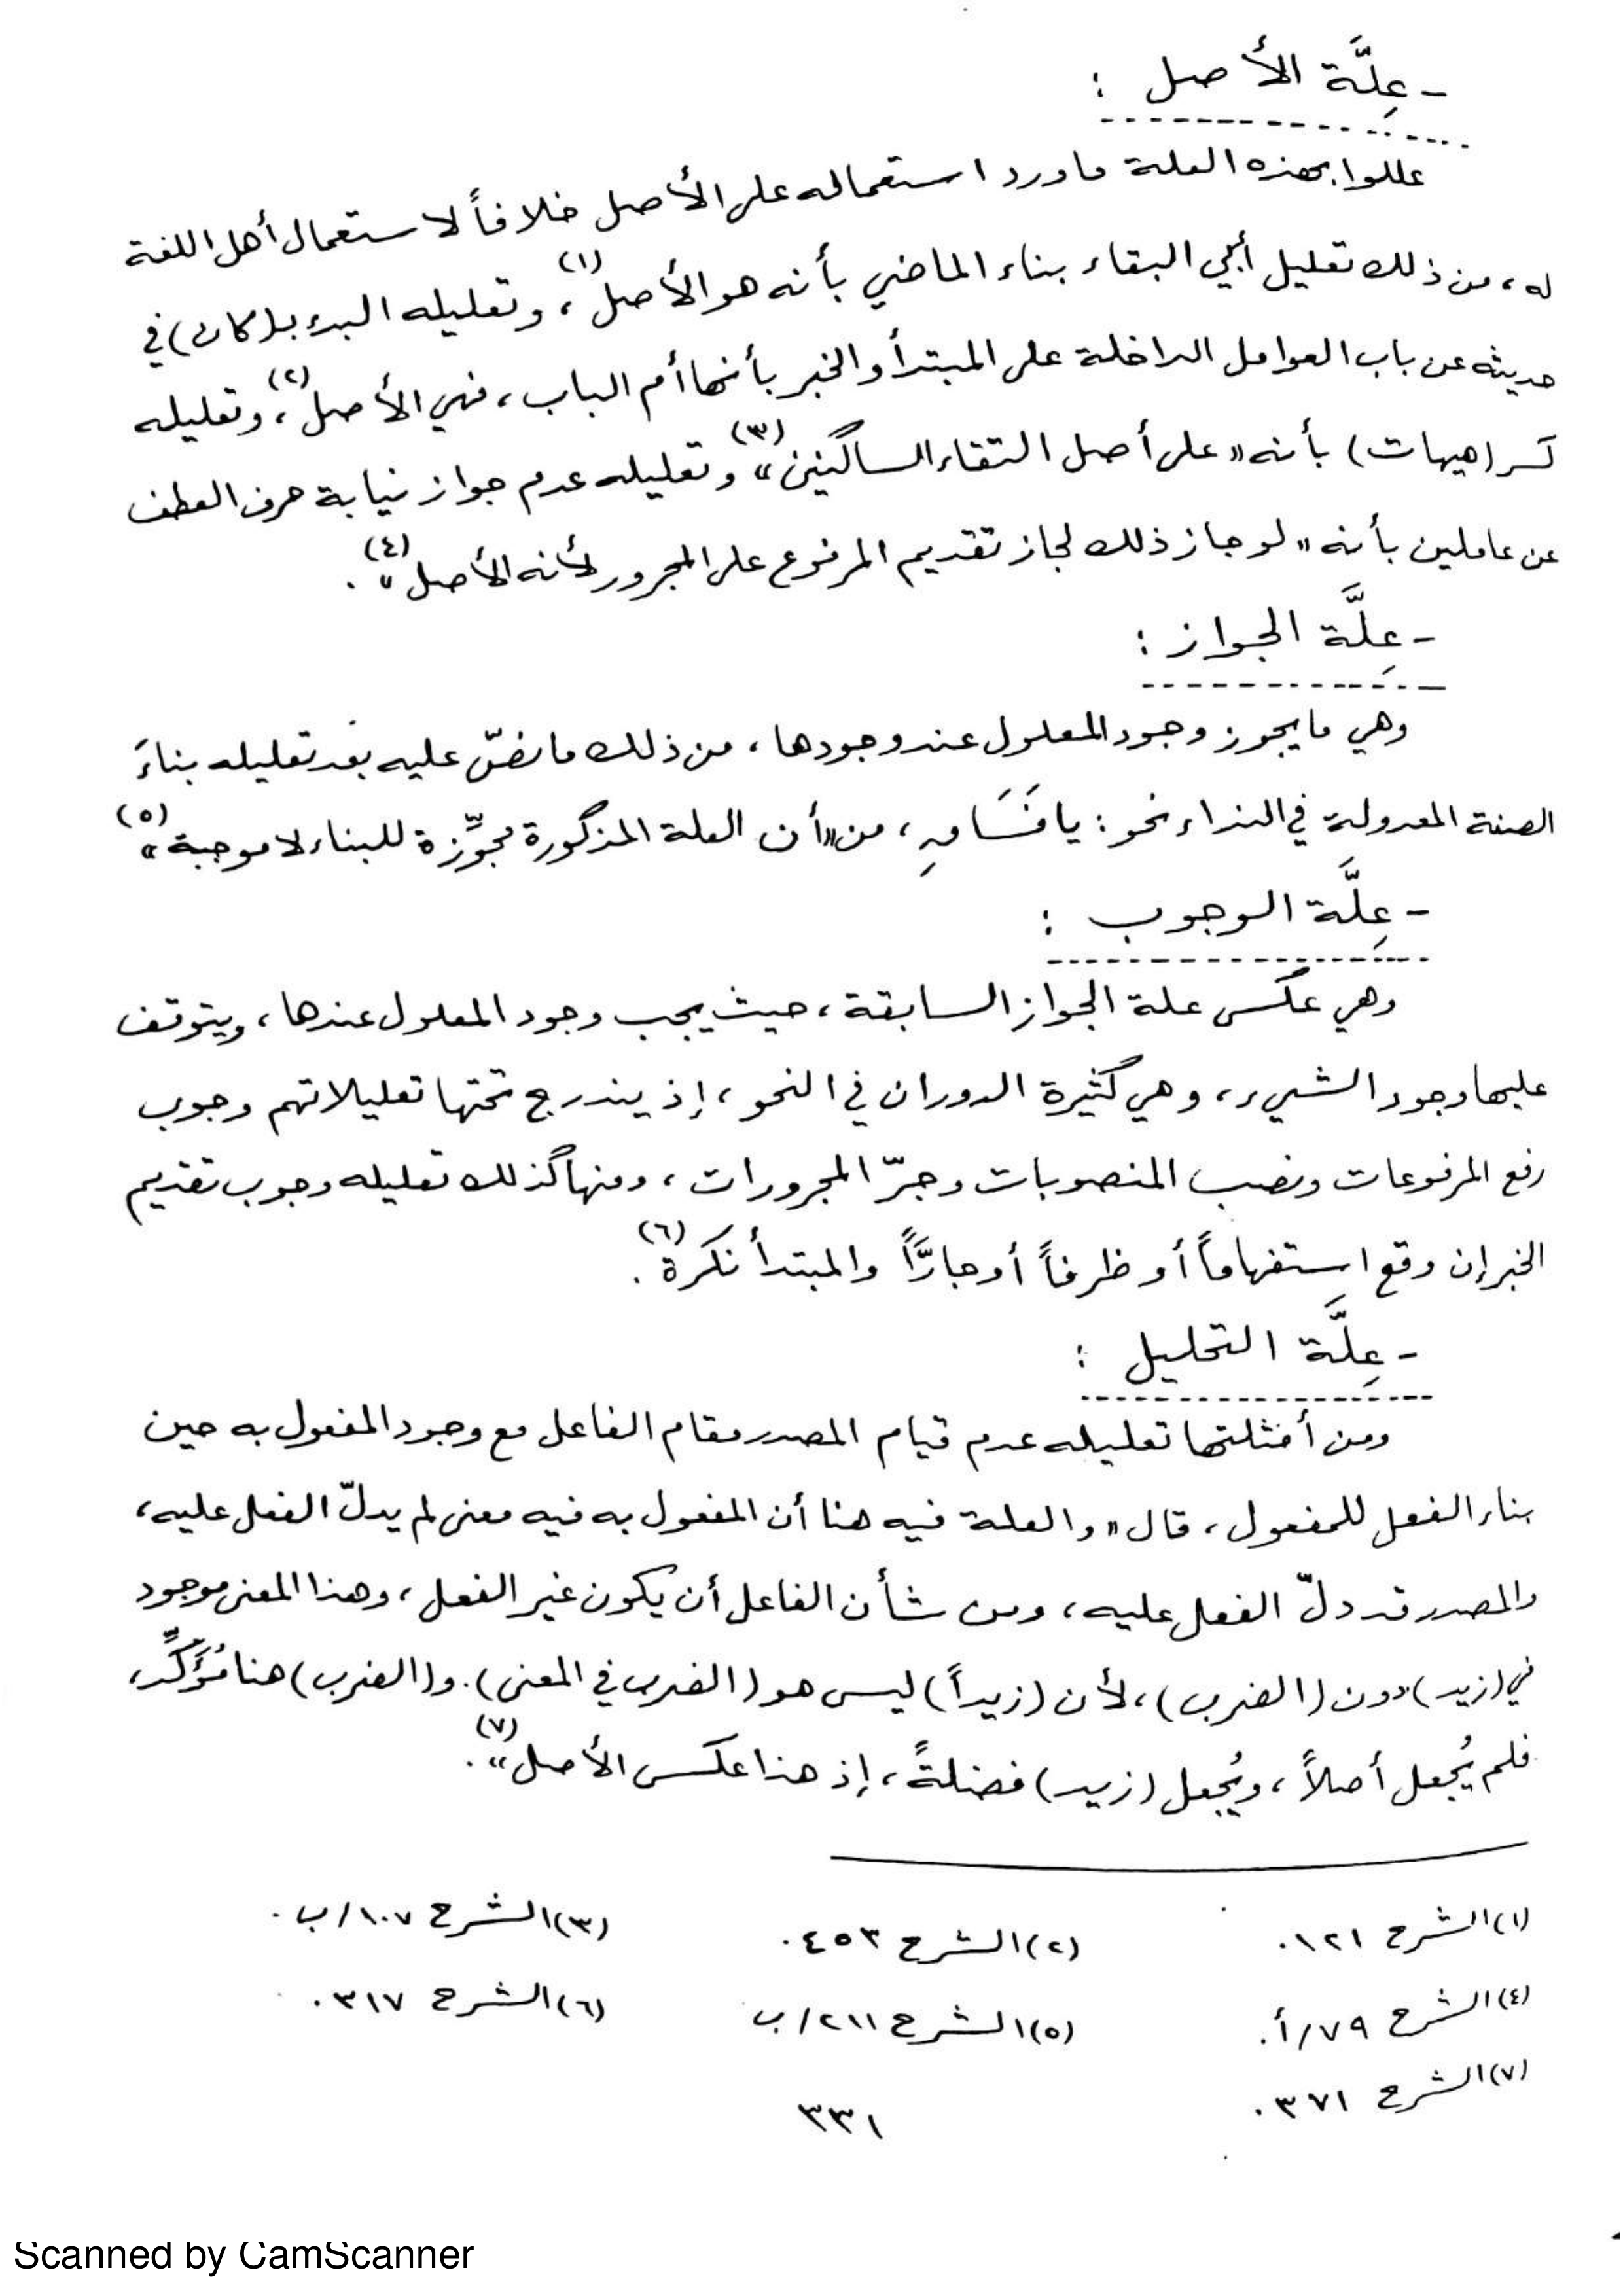 - عِلَّة الأصل :
عللوا بهذه العلة ما ورد استعماله على الأصل خلافاً لاستعمال أهل اللغة
له، من ذلك تعليل أبي البقاء بناء الماضي بأنه هو الأصل(١)، وتعليله البدء بـ(كان) في
حديثه عن باب العوامل الداخلة على المبتدأ والخبر بأنها أم الباب، فهي الأصل(٢)، وتعليله
كسر (هيهات) بأنه «على أصل التقاء الساكنين»(٣) وتعليله عدم جواز نيابة حرف العطف
عن عاملين بأنه «لو جاز ذلك لجاز تقديم المرفوع على المجرور لأنه الأصل»(٤).
- عِلَّة الجواز :
وهي ما يجوز وجود المعلول عند وجودها، من ذلك ما نصّ عليه بعد تعليله بناءَ
الصفة المعدولة في النداء نحو: يا فَسَاقِ، من «أن العلة المذكورة مجوِّزة للبناء لا موجبة»(٥)
- عِلَّة الوجوب :
وهي عكس علة الجواز السابقة، حيث يجب وجود المعلول عندها، ويتوقف
عليها وجود الشيء، وهي كثيرة الدوران في النحو، إذ يندرج تحتها تعليلاتهم وجوب
رفع المرفوعات ونصب المنصوبات وجرّ المجرورات، ومنها كذلك تعليله وجوب تقديم
الخبر إن وقع استفهاماً أو ظرفاً أو جارًّاً والمبتدأ نكرة(٦).
- عِلَّة التحليل :
ومن أمثلتها تعليله عدم قيام المصدر مقام الفاعل مع وجود المفعول به حين
بناء الفعل للمفعول، قال «والعلة فيه هنا أن المفعول به فيه معنى لم يدلّ الفعل عليه،
والمصدر قد دلّ الفعل عليه، ومن شأن الفاعل أن يكون غير الفعل، وهذا المعنى موجود
في (زيد) دون (الضرب)، لأن (زيداً) ليس هو (الضرب في المعنى). و(الضرب) هنا مُؤَكِّد،
فلم يُجعل أصلاً، ويُجعل (زيد) فضلةً، إذ هذا عكس الأصل»(٧).
(١) الشرح ١٢١.
(٢) الشرح ٤٥٣.
(٣) الشرح ١٠٧/ب.
(٤) الشرح ٧٩/أ.
(٥) الشرح ٢١١/ب
(٦) الشرح ٣١٧.
(٧) الشرح ٣٧١.
٣٣١
Scanned by CamScanner